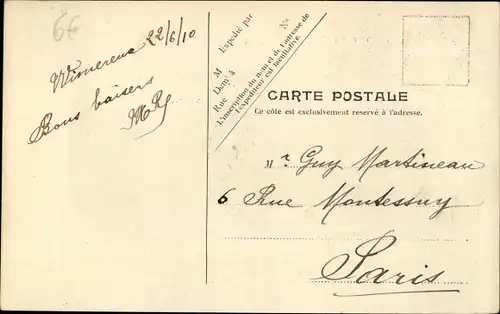 6€
Wimereux 22/6/10
Bons baisers
Expédié par
M
Dem^t à
Rue
N°
L'inscription du nom et de l'adresse de
l'expéditeur est facultative.
CARTE POSTALE
Ce côté est exclusivement réservé à l'adresse.
M^r Guy Martineau
6 Rue Montessuy
Paris